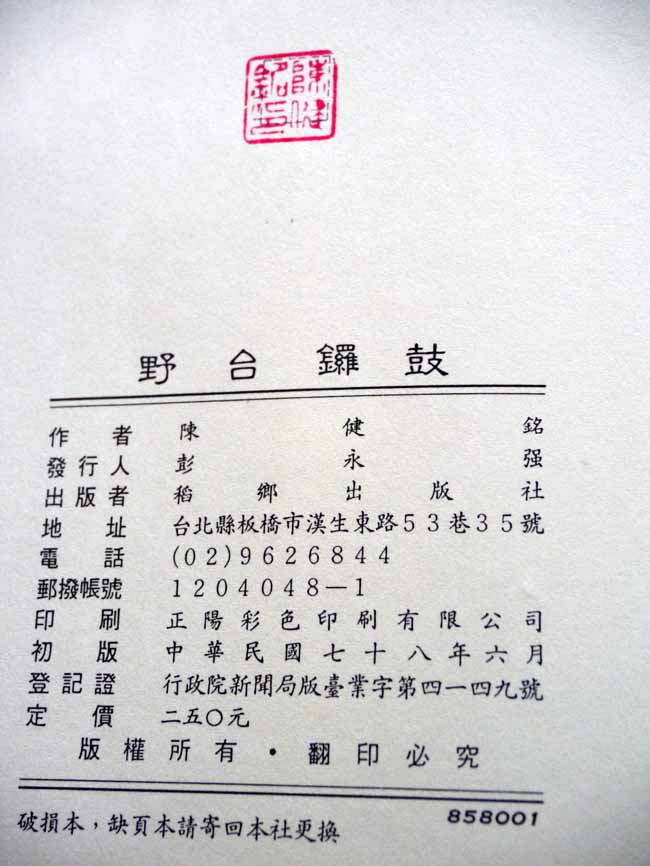 陳健銘印
野台鑼鼓
作者 陳健銘
發行人 彭永强
出版者 稻鄉出版社
地址 台北縣板橋市漢生東路53巷35號
電話 (02)9626844
郵撥帳號 1204048－1
印刷 正陽彩色印刷有限公司
初版 中華民國七十八年六月
登記證 行政院新聞局版臺業字第四一四九號
定價 二五○元
版權所有・翻印必究
破損本，缺頁本請寄回本社更換
858001